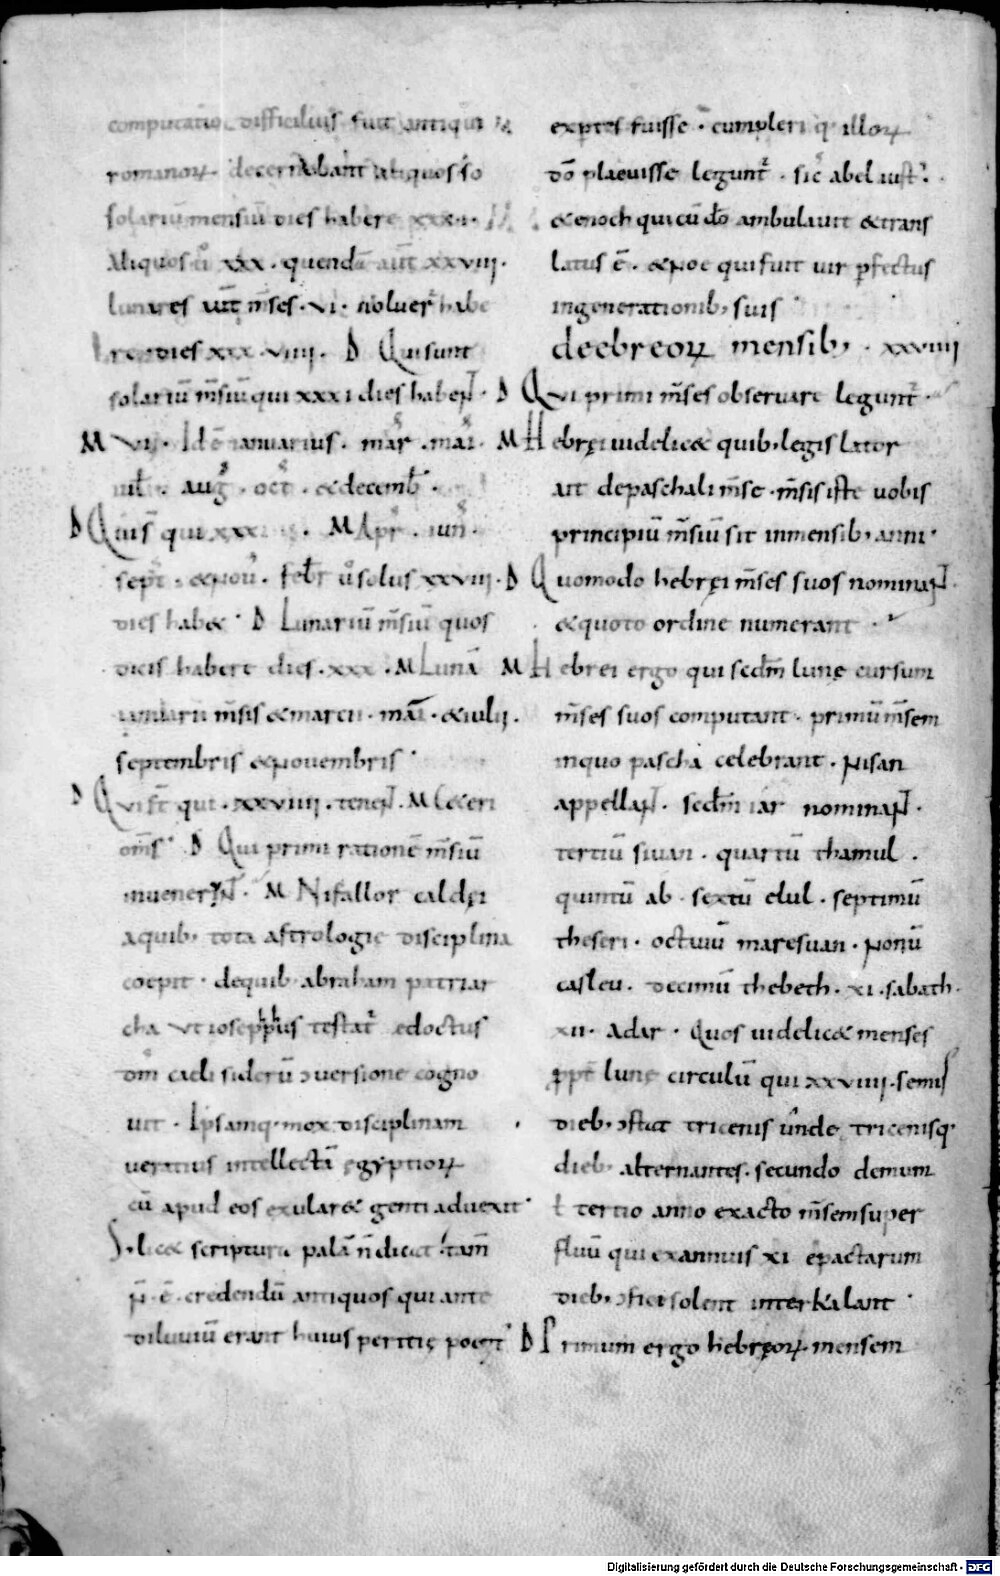 computatio difficilius fuit antiqui
romanoꝝ decernobant aliquos so
solariū mensiū dies habere xxx.i.
Aliquos ů xxx . quendā aūt xxviii.
lunares aūt m̄ses . vi . noluer̄ habe
re dies xxx . viiii . D Qui sunt
solariū m̄siū qui xxxi dies habeɴ̄t .
M vii . Idē ianuarius . mar̄ . mai .
iul̄ . aug̃ . oct̃ . & decemb̄ .
D Qui s̄ qui xxx . M Apr̄ . iun̄ .
sept̄ . & nou̅ . feb̄r ů solus xxviii .
dies hab& . D Lunariū m̄siū quos
dicis habere dies . xxx . M Lunā
ianuarii m̄sis & marcii . mai . & iulii .
septembris & nouembris .
D Qui s̄t qui . xxviiii . teneɴ̄t . M Ceteri
om̄s . D Qui primi rationē m̄siū
inueneruɴ̄t . M Ni fallor caldęi
a quib; tota astrologię disciplina
coepit . de quib; abraham patriar
cha ut ioseppus testat̄ edoctus
om̄ caeli siderū ɔuersione cogno
uit . Ipsamq; mox disciplinam
ueratius intellectā ęgyptioꝝ
cū apud eos exular& genti aduexit .
D . lic& scriptura palā n̄ dicat . tam̄
n̄ . ē . credendū antiquos qui ante
diluuiū erant huius peritię poenit̄
exp̄tes fuisse . cum pleriq; illoꝝ
dō placuisse legunt̄ . sic̄ abel iust;
& enoch qui cū dō ambulauit & trans
latus ē . & noe qui fuit uir p̄fectus
in generationib; suis
de ebreoꝝ mensib; . xxviiii
D Qui primi m̄ses obseruare legunt̄ .
M Hebręi uidelic& quib; legis lator
ait de paschali m̄se . m̄sis iste uobis
principiū m̄siū sit in mensib; anni .
D Quomodo hebręi m̄ses suos nominaɴ̄t .
& quoto ordine numerant .
M Hebrei ergo qui sedm̄ lunę cursum
m̄ses suos computant . primū m̄sem
in quo pascha celebrant . nisan
appellaɴ̄t . sedm̄ iar nominaɴ̄t .
tertiū siuan . quartū thamul .
quintū ab . sextū elul . septimū
theseri . octauū maresuan . nonū
casleu . decimū thebeth . xi . sabath .
xii . adar . Quos uidelic& menses
ꝓpt̄ lunę circulū qui xxviiii . semis
dieb; ɔstat tricenis unde tricenisq;
dieb; alternantes . secundo demum
ł tertio anno exacto m̄sem super
fluū qui ex annuis xi epactarum
dieb; ɔfici solent interkalant .
D Primum ergo hebręoꝝ mensem
Digitalisierung gefördert durch die Deutsche Forschungsgemeinschaft - DFG